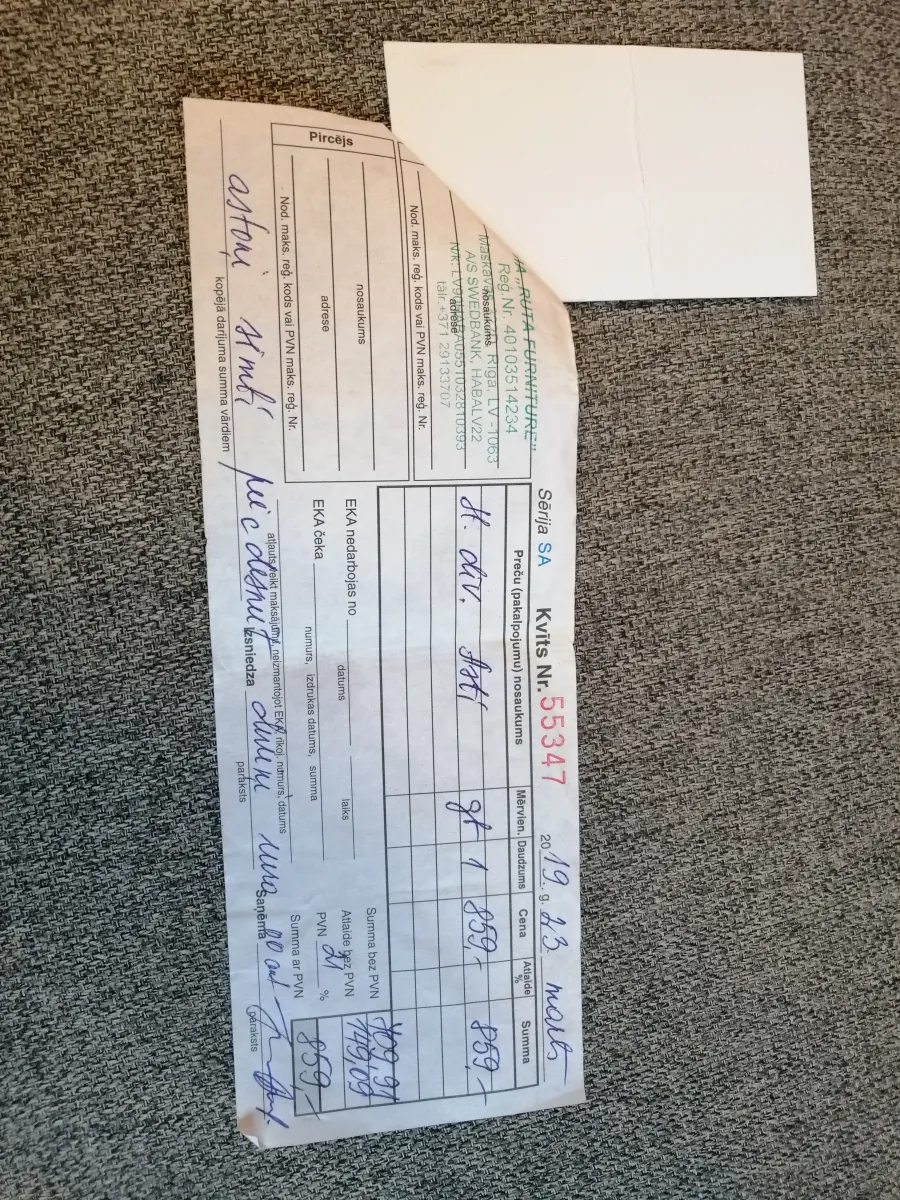 Sērija SA Kvīts Nr. 55347 2019. g. 23. marts
"RUTA FURNITURE"
Reģ Nr. 40103514234
Rīga, LV -1063
A/S SWEDBANK, HABALV22
tālr.+371 29133707
nosaukums
adrese
Nod. maks. reģ. kods vai PVN maks. reģ. Nr.
Pircējs
nosaukums
adrese
Nod. maks. reģ. kods vai PVN maks. reģ. Nr.
Preču (pakalpojumu) nosaukums Mērvien. Daudzums Cena Atlaide % Summa
st. div. 1 859,- 859,-
Summa bez PVN 709,91
EKA nedarbojas no datums laiks Atlaide bez PVN 149,09
EKA čeka numurs, izdrukas datums, summa PVN 21 %
Summa ar PVN 859,-
atļauts veikt maksājumu, neizmantojot EKA, rīkoj. numurs, datums
astoņi simti piecdesmit deviņi 00
kopējā darījuma summa vārdiem
Izsniedza paraksts
Saņēma paraksts